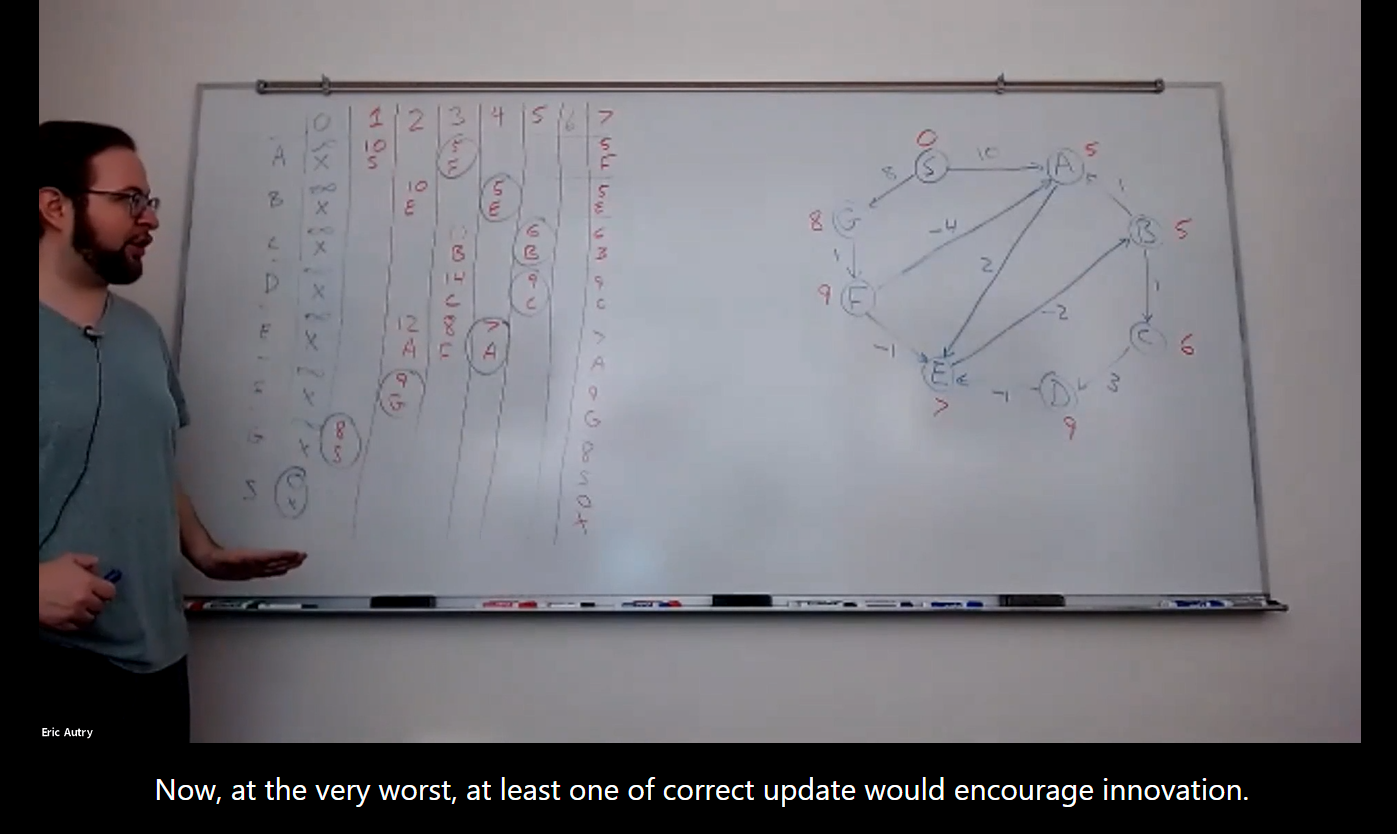 0 1 2 3 4 5 6 7
A ∞ X 10 S 5 F 5 F
B ∞ X 10 E 5 E 5 E
C ∞ X B 6 B 6 B
D X 14 C 9 C 9 C
E X 12 A 8 F 7 A 7 A
X 9 G 9 G
G X 8 S 8 S
S 0 X 0 X
0
S 10 A 5
8
8 G -4 1 B 5
1 2
9 F -2 1
-1 C 6
E -1 D 3
7 9
Eric Autry
Now, at the very worst, at least one of correct update would encourage innovation.